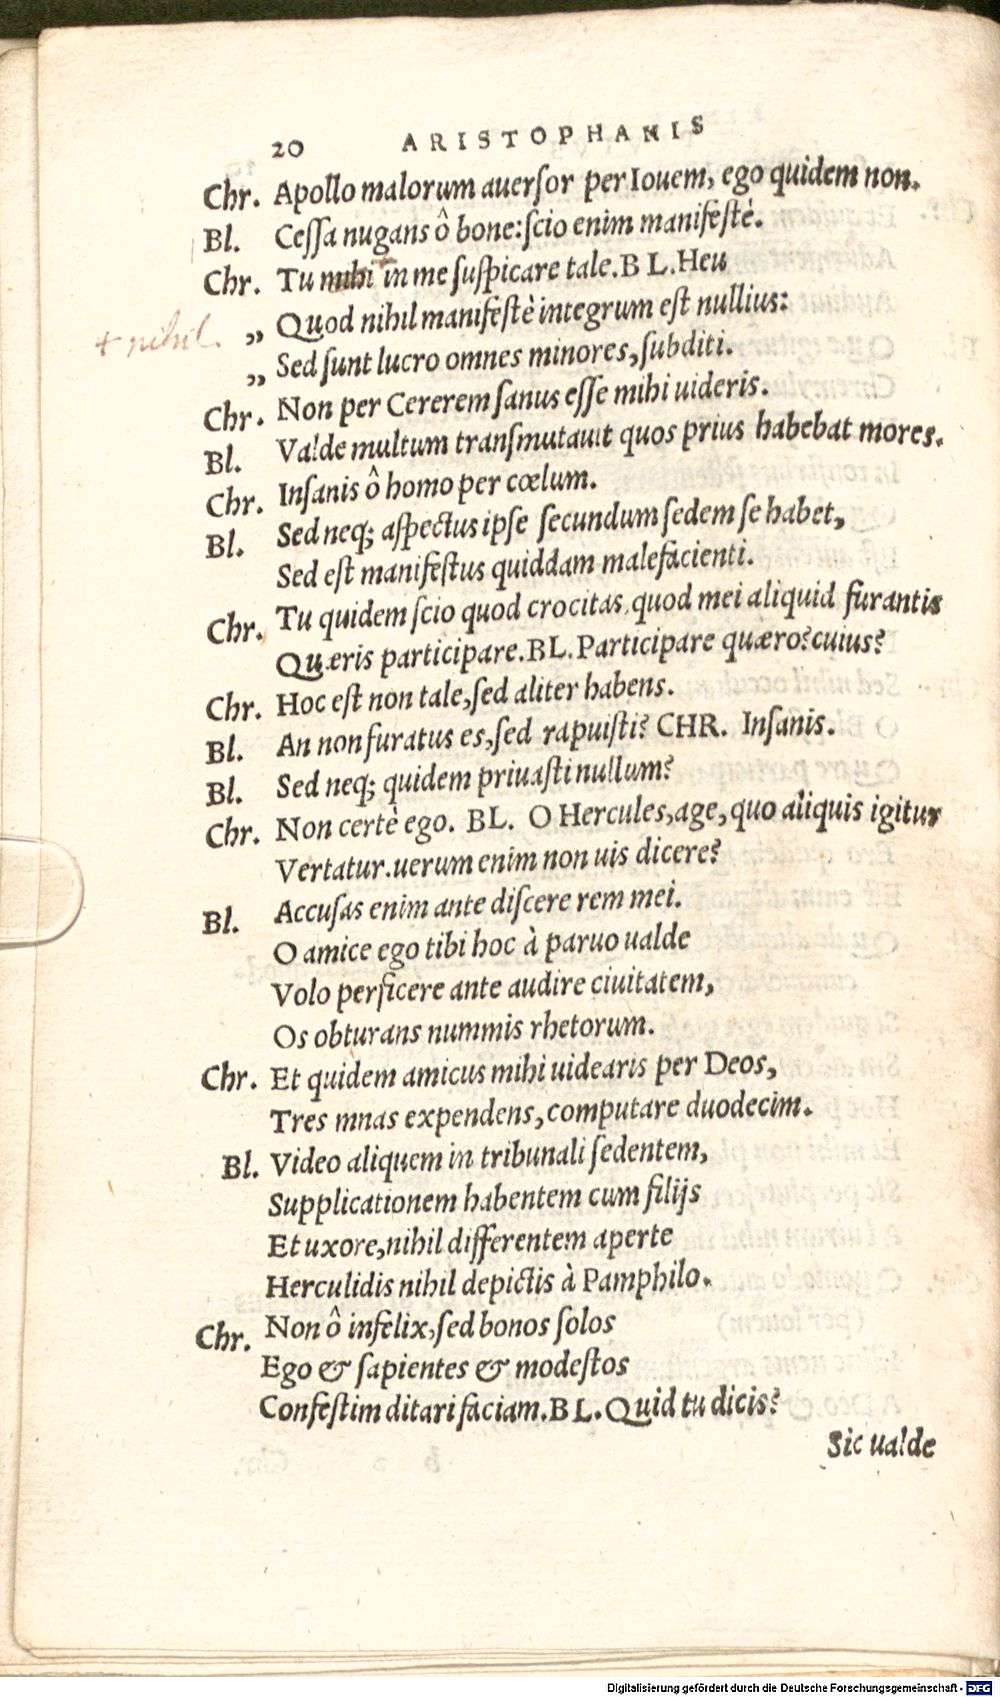 20 ARISTOPHANIS
Chr. Apollo malorum auerſor per Iouem, ego quidem non.
Bl. Ceſſa nugans ô bone: ſcio enim manifeſtè.
Chr. Tu mihi in me ſuſpicare tale. BL. Heu
+ nihil. „ Quod nihil manifeſtè integrum eſt nullius:
„ Sed ſunt lucro omnes minores, ſubditi.
Chr. Non per Cererem ſanus eſſe mihi uideris.
Bl. Valde multum tranſmutauit quos prius habebat mores.
Chr. Inſanis ô homo per cœlum.
Bl. Sed neq; aſpectus ipſe ſecundum ſedem ſe habet,
Sed eſt manifeſtus quiddam malefacienti.
Chr. Tu quidem ſcio quod crocitas, quod mei aliquid furantis
Quæris participare. BL. Participare quæro? cuius?
Chr. Hoc eſt non tale, ſed aliter habens.
Bl. An non furatus es, ſed rapuiſti? CHR. Inſanis.
Bl. Sed neq; quidem priuaſti nullum?
Chr. Non certè ego. BL. O Hercules, age, quo aliquis igitur
Vertatur. uerum enim non uis dicere?
Bl. Accuſas enim ante diſcere rem mei.
O amice ego tibi hoc à paruo ualde
Volo perficere ante audire ciuitatem,
Os obturans nummis rhetorum.
Chr. Et quidem amicus mihi uidearis per Deos,
Tres mnas expendens, computare duodecim.
Bl. Video aliquem in tribunali ſedentem,
Supplicationem habentem cum filijs
Et uxore, nihil differentem aperte
Herculidis nihil depictis à Pamphilo.
Chr. Non ô infelix, ſed bonos ſolos
Ego & ſapientes & modeſtos
Confeſtim ditari faciam. BL. Quid tu dicis?
Sic ualde
Digitalisierung gefördert durch die Deutsche Forschungsgemeinschaft - DFG